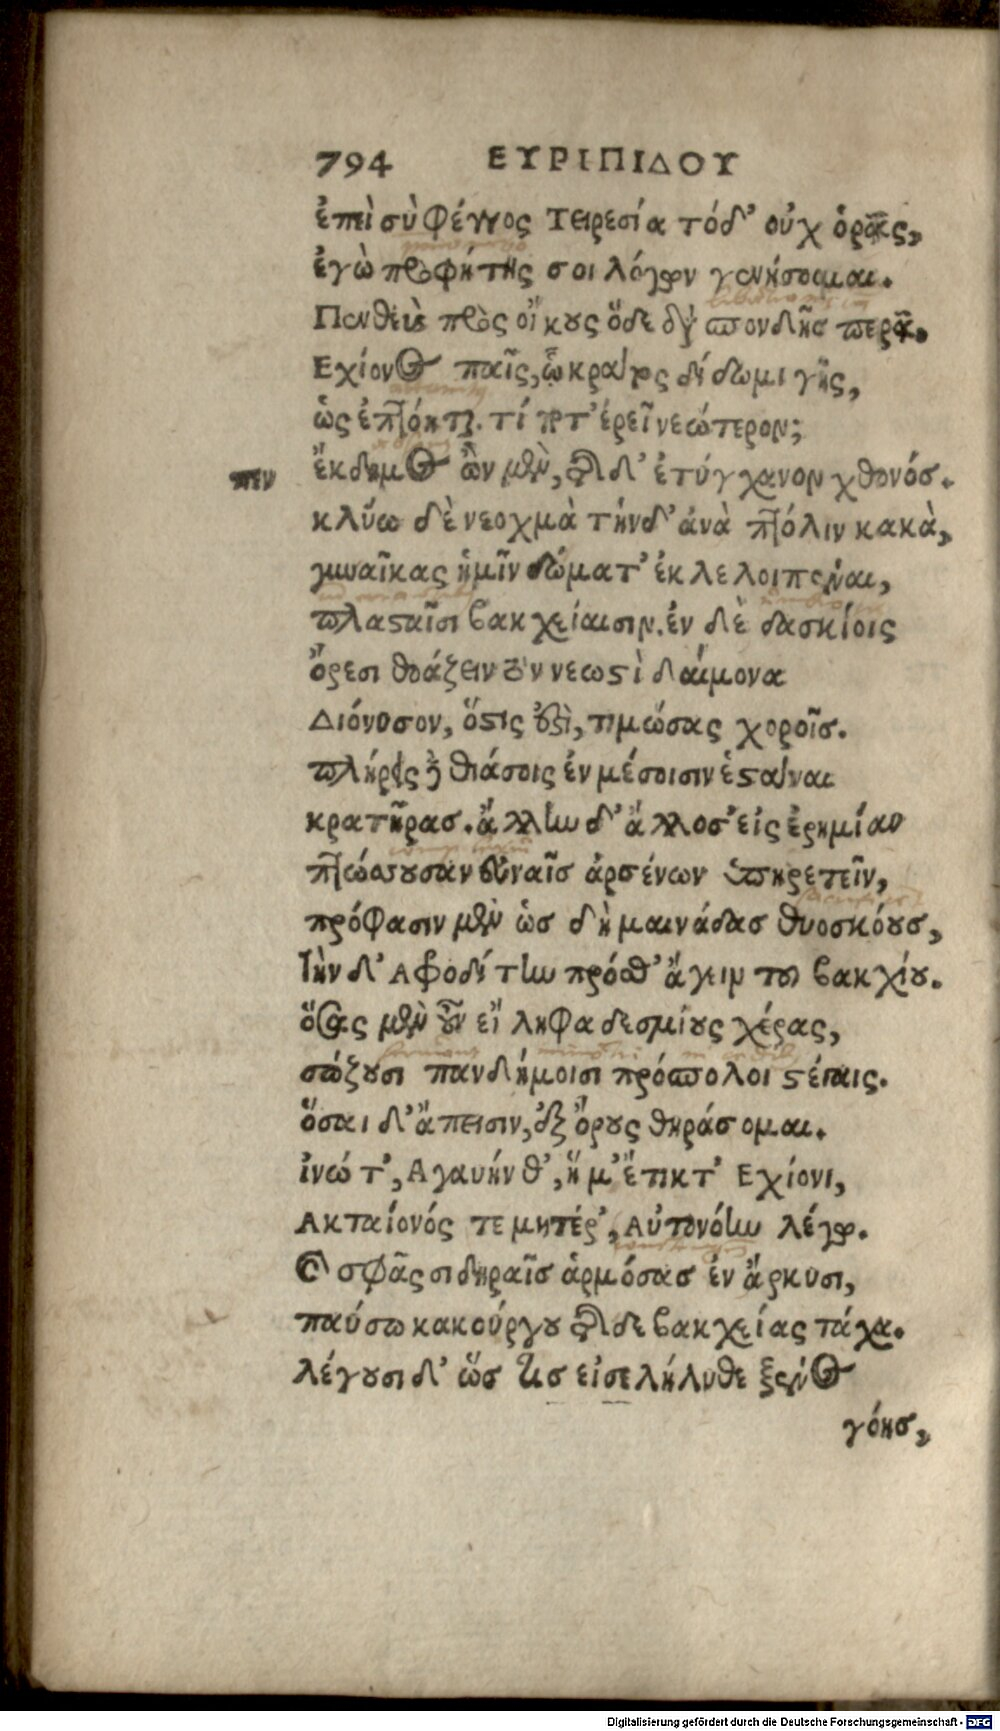 794 ΕΥΡΙΠΙΔΟΥ
ἐπεὶ σὺ φέγγος Τειρεσία τόδ' οὐχ ὁρᾷς,
ἐγὼ προφήτης σοι λόγων γενήσομαι.
Πενθεὺς πρὸς οἴκους ὅδε διὰ σπουδῆς περᾷ.
Εχίονος παῖς, ᾧ κράτος δίδωμι γῆς,
ὡς ἐπτόηται. τί ποτ' ἐρεῖ νεώτερον;
πεν ἔκδημος ὢν μὲν, τῆσδ' ἐτύγχανον χθονόσ.
κλύω δὲ νεοχμὰ τήνδ' ἀνὰ πτόλιν κακὰ,
γυναῖκας ἡμῖν δώματ' ἐκλελοιπέναι,
πλασταῖσι βακχείαισιν. ἐν δὲ δασκίοις
ὄρεσι θοάζειν τὸν νεωστὶ δαίμονα
Διόνυσον, ὅστις ἐστὶ, τιμώσας χοροῖσ.
πλήρεις δὲ θιάσοις ἐν μέσοισιν ἑστάναι
κρατῆρασ. ἄλλην δ' ἄλλοσ' εἰς ἐρημίαν
πτώσσουσαν εὐναῖσ ἀρσένων ὑπηρετεῖν,
πρόφασιν μὲν ὡσ δὴ μαινάδασ θυοσκόουσ,
τὴν δ' Αφροδίτην πρόσθ' ἄγειν τοῦ βακχίου.
ὅσας μὲν οὖν εἴληφα δεσμίους χέρας,
σώζουσι πανδήμοισι πρόσπολοι στέγαις.
ὅσαι δ' ἄπεισιν, ἐξ ὄρους θηράσομαι.
ἰνώ τ', Αγαυήν θ', ἥ μ' ἔτικτ' Εχίονι,
Ακταίονός τε μητέρ', Αὐτονόην λέγω.
καὶ σφᾶς σιδηραῖσ ἁρμόσασ ἐν ἄρκυσι,
παύσω κακούργου τῆσδε βακχείας τάχα.
λέγουσι δ' ὥσ τισ εἰσελήλυθε ξένος
γόησ,
Digitalisierung gefördert durch die Deutsche Forschungsgemeinschaft - DFG